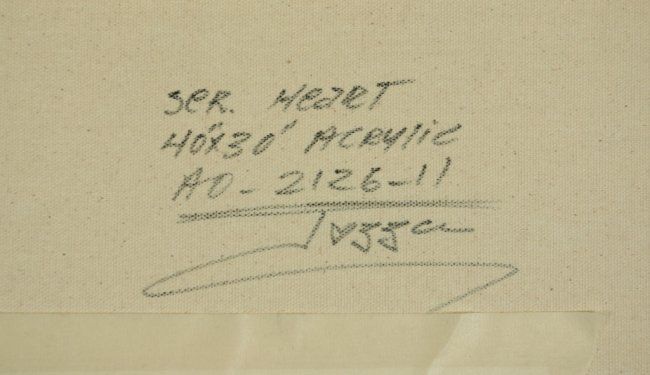 SER. HEART
40"X30" ACRYLIC
AD-2126-11